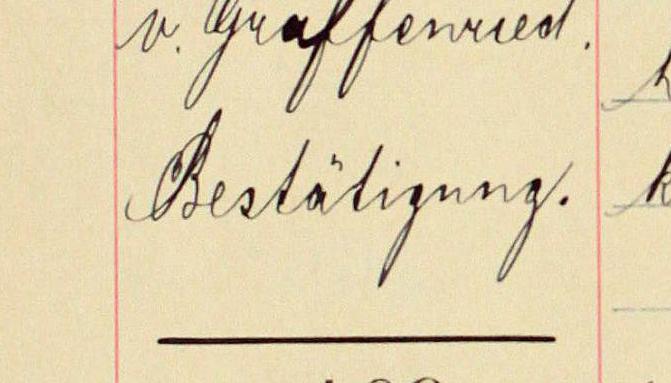 v. Graffenried.
Bestätigung.